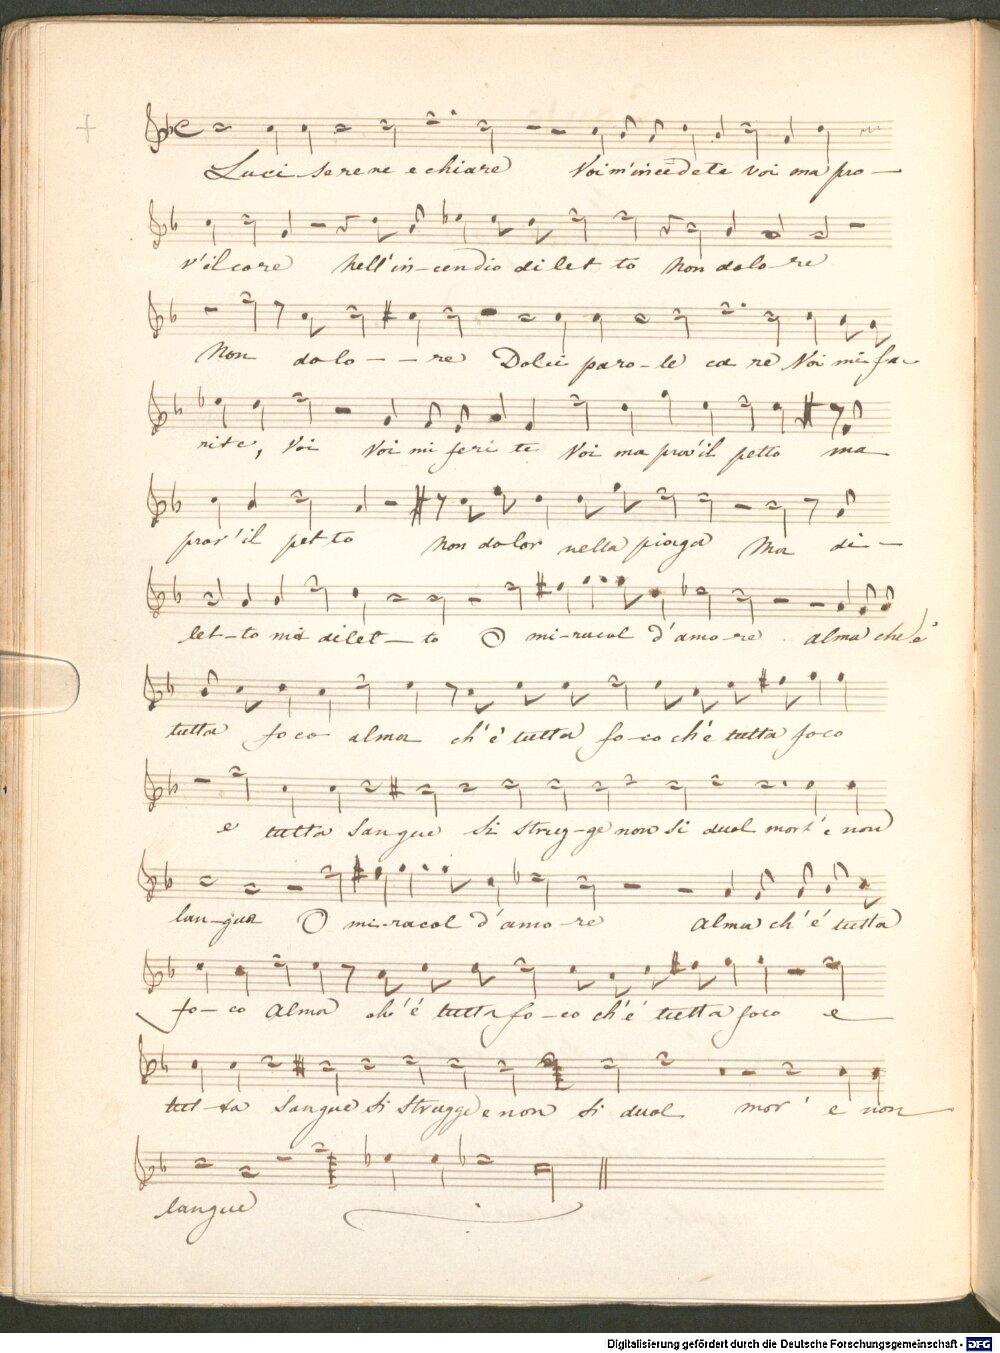 Luci serene e chiare Voi m'incēdete voi ma pro-
v'il core nell'in-cendio dilet to non dolo-re
Non dolo--re Dolci paro-le ca re Voi mi fe-
rite, Voi Voi mi feri te Voi ma prov'il petto ma
prov'il pet to non dolor nella piaga Ma di-
let-to ma dilet-to O mi-racol d'amo-re alma che è
tutta foco alma ch'è tutta fo-co ch'è tutta foco
e tutta sangue Si strug-ge non si duol mor' e non
lan-gue O mi-racol d'amo-re alma ch'è tutta
fo-co alma ch'è tutta fo-co ch'è tutta foco e
tut-ta sangue Si strugge e non si duol mor' e non
langue
Digitalisierung gefördert durch die Deutsche Forschungsgemeinschaft - DFG